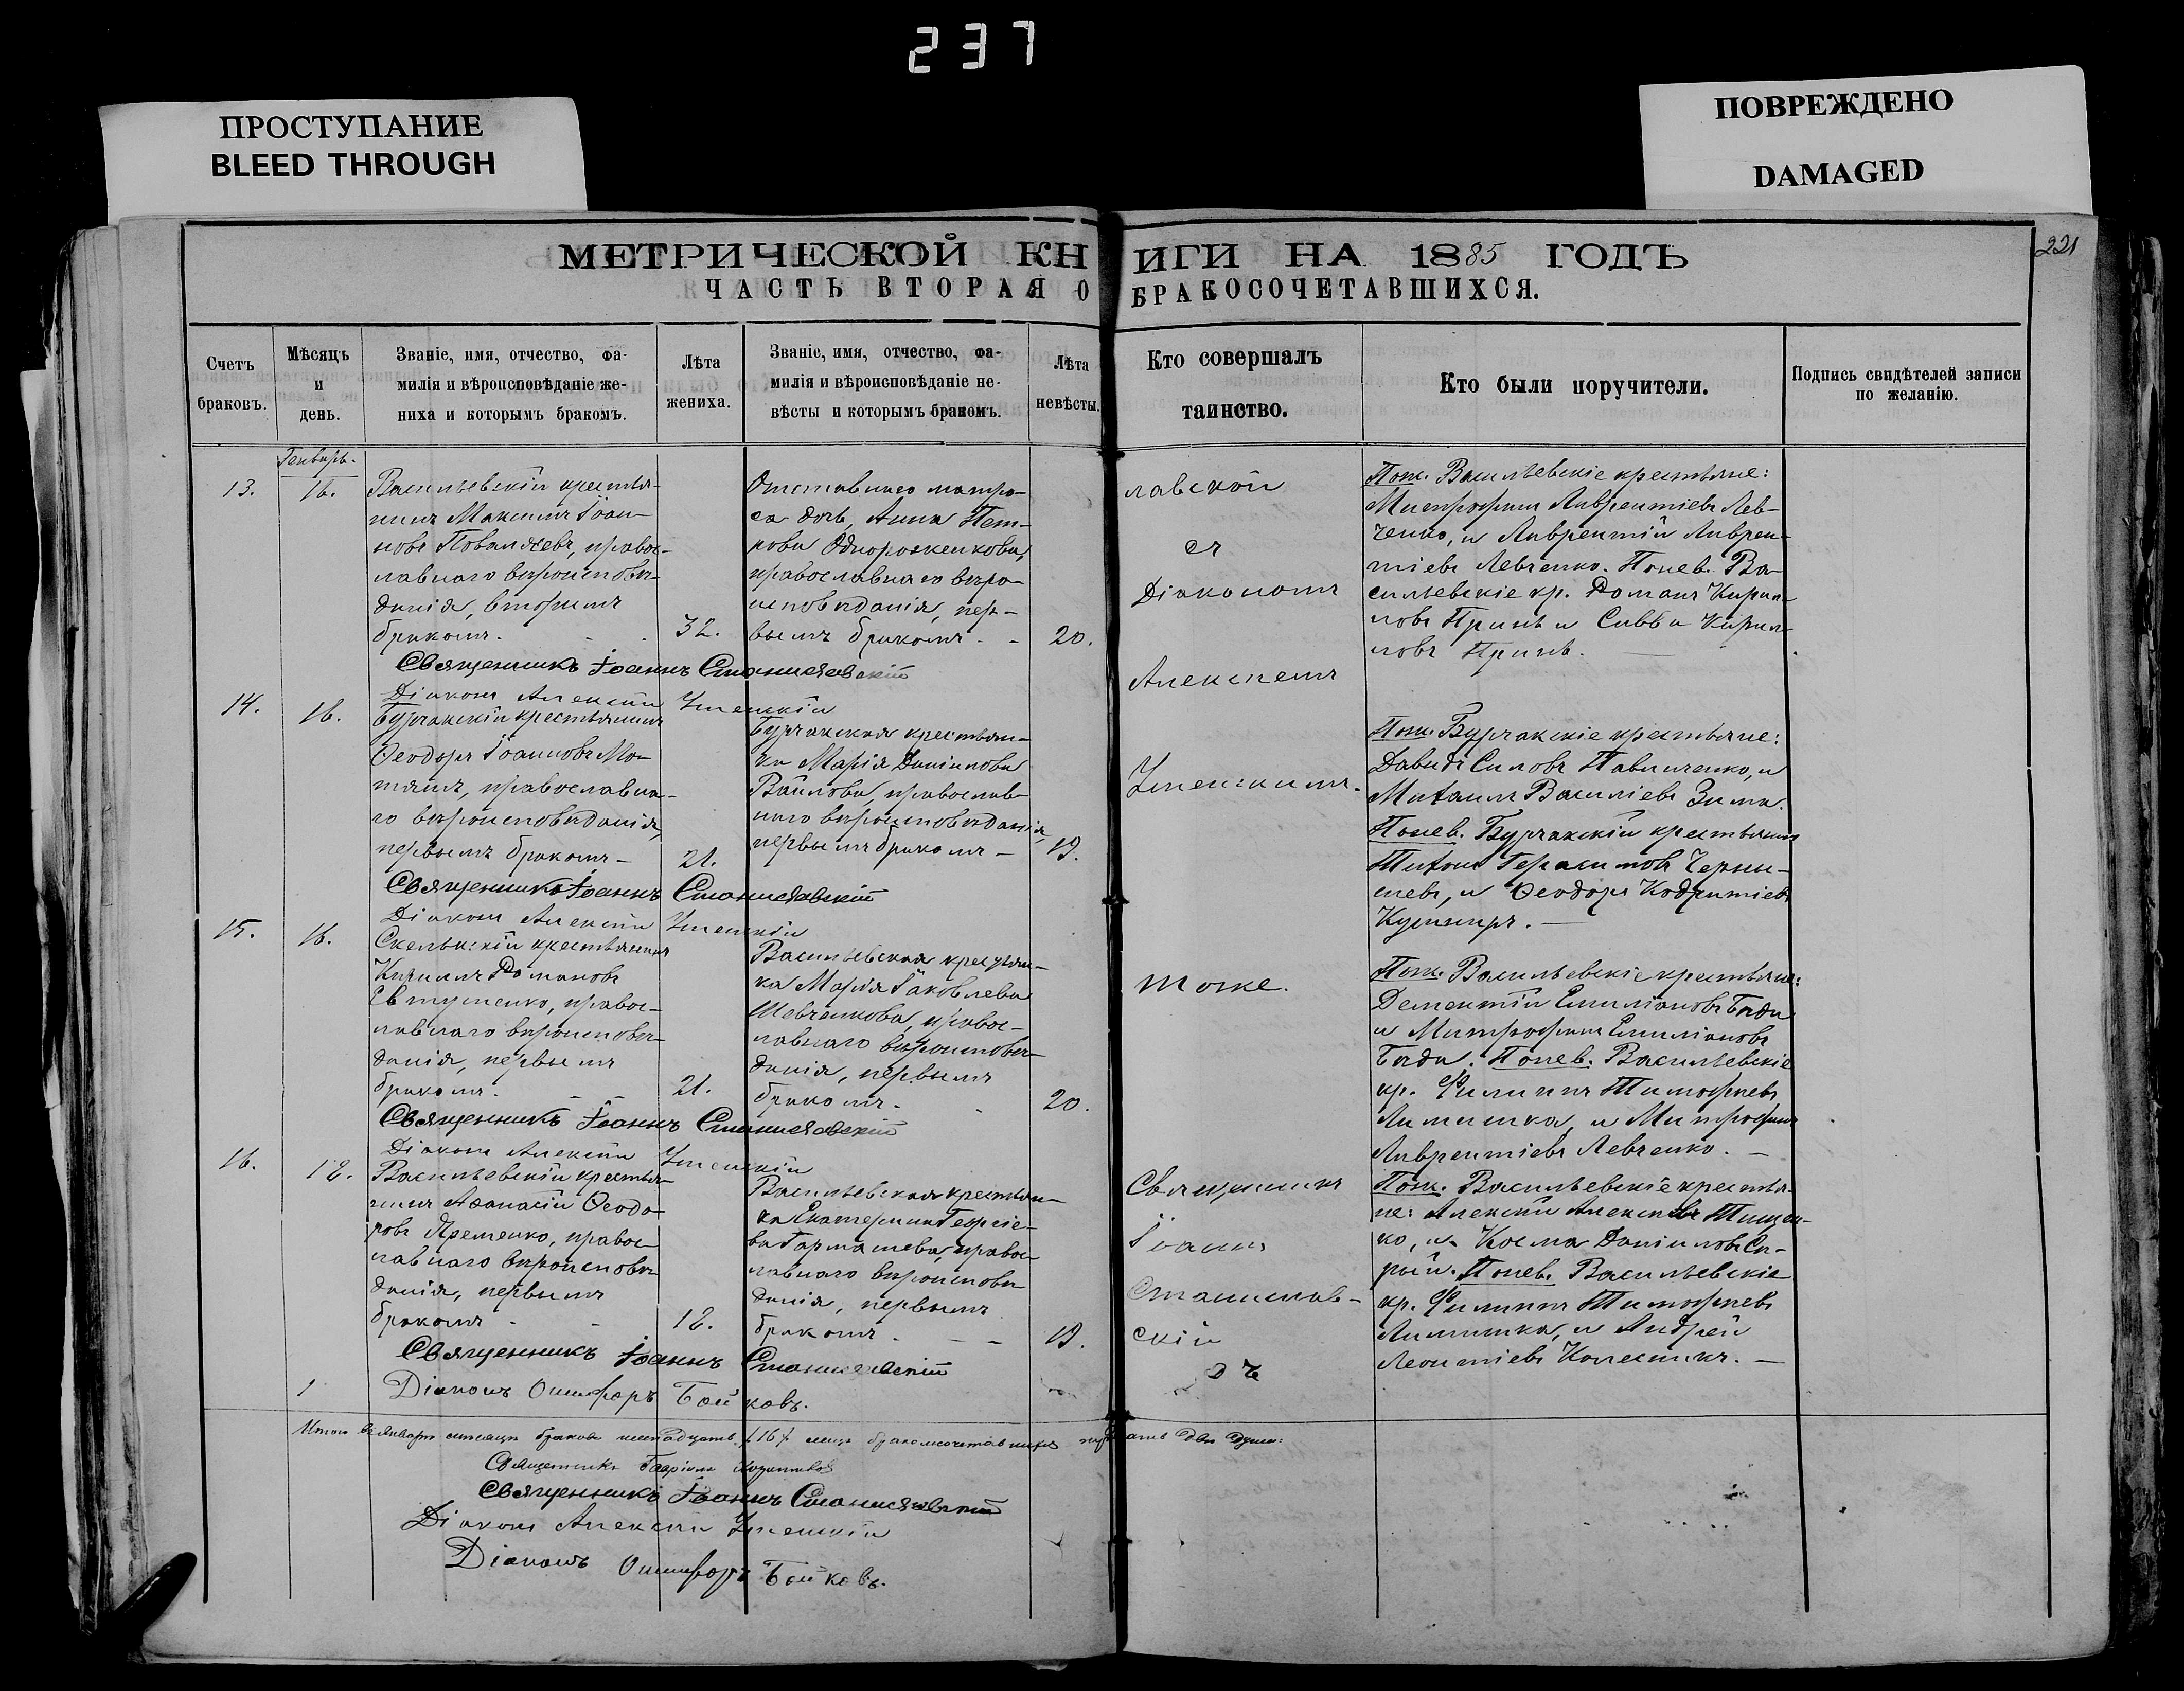 237
ПРОСТУПАНИЕ
BLEED THROUGH
ПОВРЕЖДЕНО
DAMAGED
МЕТРИЧЕСКОЙ КНИГИ НА 1885 ГОДЪ
221
ЧАСТЬ ВТОРАЯ О БРАКОСОЧЕТАВШИХСЯ.
Счетъ
браковъ.
Мѣсяцъ
и
день.
Званіе, имя, отчество, фа-
милія и вѣроисповѣданіе же-
ниха и которымъ бракомъ.
Лѣта
жениха.
Званіе, имя, отчество, фа-
милія и вѣроисповѣданіе не-
вѣсты и которымъ бракомъ.
Лѣта
невѣсты.
Кто совершалъ
таинство.
Кто были поручители.
Подпись свидѣтелей записи
по желанію.
Генварь.
13.
16.
Васильевскій крестья-
нинъ Максимъ Іоан-
новъ, правос-
лавнаго вѣроисповѣ-
данія, вторымъ
бракомъ.
32.
Отставнаго матро-
са дочь, Анна Пет-
рова Однороженкова,
православнаго вѣро-
исповѣданія, пер-
вымъ бракомъ
20.
лавской
съ
Діакономъ
Алексіемъ
Пож. Васильевскіе крестьяне:
Митрофанъ Лаврентіевъ Лев-
ченко, и Лаврентій Лаврен-
тіевъ Левченко. Поневѣ. Ва-
сильевскіе кр. Романъ Кирил-
ловъ и Савва Кирил-
ловъ
Священникъ Іоаннъ Станиславскій
Діаконъ Алексій
14.
16.
Бурчакскій крестьянинъ
Ѳеодоръ Іоанновъ Мо-
православна-
го вѣроисповѣданія,
первымъ бракомъ
21.
Бурчакская крестьян-
ка Марія Даніилова
православ-
наго вѣроисповѣданія,
первымъ бракомъ
19.
Пож. Бурчакскіе крестьяне:
Давидъ Силовъ Павличенко, и
Михаилъ Василіевъ Зима.
Понев. Бурчакскій крестьянинъ
Тихонъ Герасимовъ Черны-
шевъ, и Ѳеодоръ Кодратіевъ
Кушниръ.
Священникъ Іоаннъ Станиславскій
Діаконъ Алексій
15.
16.
Скельскій крестьянинъ
Кириллъ Романовъ
Евтушенко, правос-
лавнаго вѣроисповѣ-
данія, первымъ
бракомъ.
21.
Васильевская крестьян-
ка Марія Іаковлева
Шевченкова, правос-
лавнаго вѣроисповѣ-
данія, первымъ
бракомъ.
20.
тоже.
Пож. Васильевскіе крестьяне:
Дементій Емиліановъ Бѣда
и Митрофанъ Емиліановъ
Бѣда. Понев. Васильевскіе
кр. Филиппъ Тимофѣевъ
и Митрофанъ
Лаврентіевъ Левченко.
Священникъ Іоаннъ Станиславскій
Діаконъ Алексій
16.
18.
Васильевскій крестья-
нинъ Аѳанасій Ѳеодо-
ровъ Яременко, правос-
лавнаго вѣроисповѣ-
данія, первымъ
бракомъ
18.
Васильевская крестьян-
ка Екатерина Георгіе-
ва Гармашева, правос-
лавнаго вѣроисповѣ-
данія, первымъ
бракомъ
19.
Священникъ
Іоаннъ
Станислав-
скій
Пож. Васильевскіе крестья-
не: Алексій Алексіевъ Тищен-
ко, и Косма Даніиловъ Сѣ-
рый. Понев. Васильевскіе
кр. Филиппъ Тимофѣевъ
и Андрей
Леонтіевъ Колесникъ.
Священникъ Іоаннъ Станиславскій
Діаконъ Онисифоръ Бойковъ.
Итого въ январѣ мѣсяцѣ браковъ шестнадцать (16) лицъ бракосочетавшихся тридцать двѣ души:
Священникъ Гавріилъ
Священникъ Іоаннъ Станиславскій
Діаконъ Алексій
Діаконъ Онисифоръ Бойковъ.